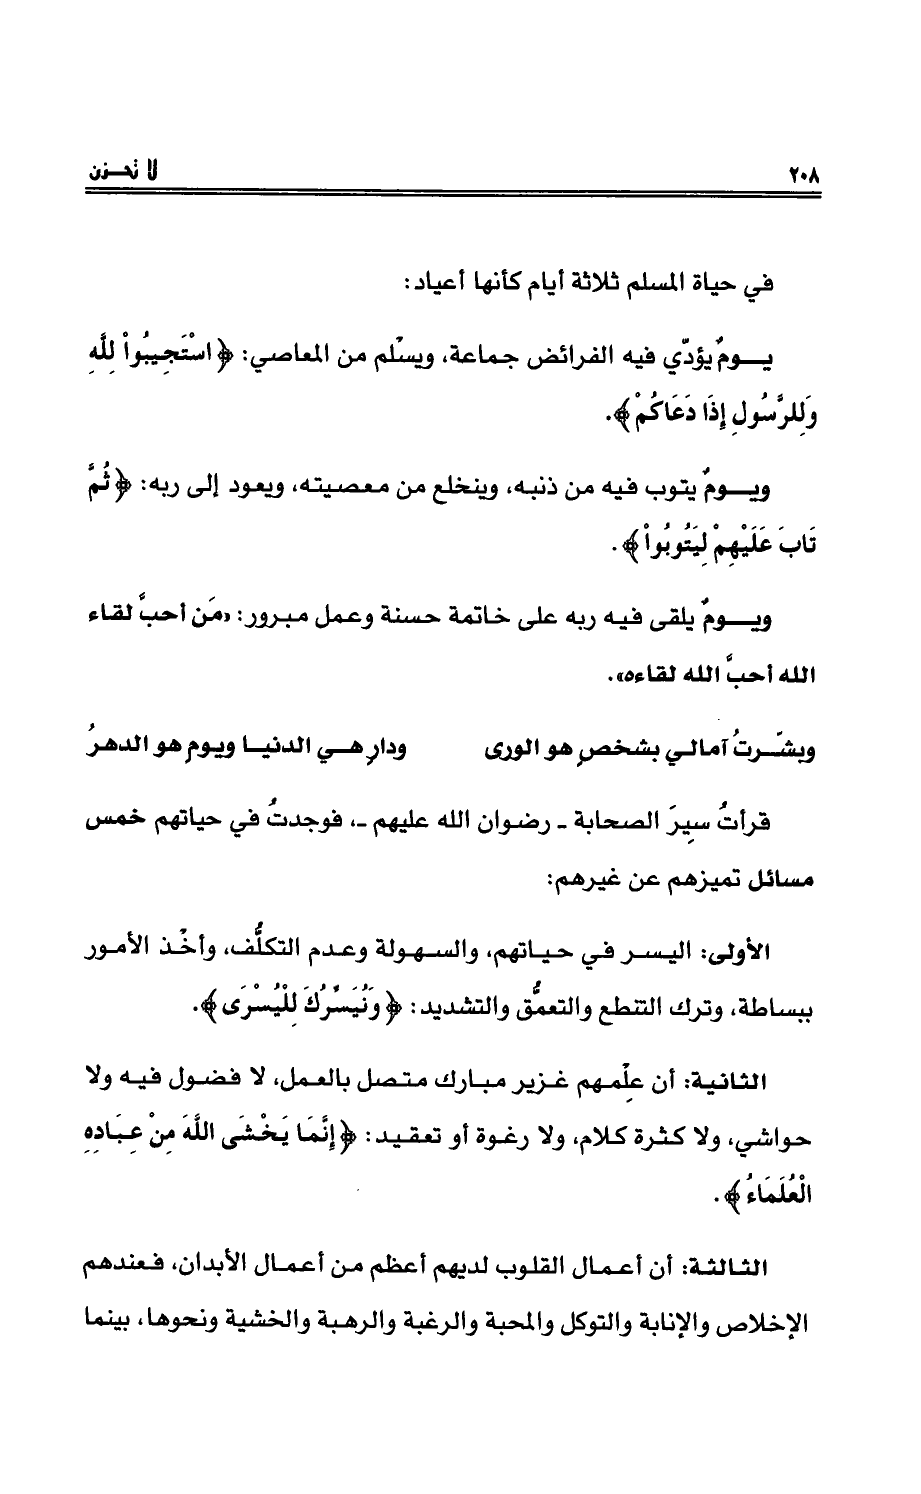 ٢٠٨ لا تحـــزن
في حياة المسلم ثلاثة أيام كأنها أعياد:
يـــومٌ يؤدّي فيه الفرائض جماعة، ويسلَّم من المعاصي: ﴿ اسْتَجِيبُواْ لِلَّهِ
وَلِلرَّسُولِ إِذَا دَعَاكُمْ ﴾.
ويـــومٌ يتوب فيه من ذنبه، وينخلع من معصيته، ويعود إلى ربه: ﴿ ثُمَّ
تَابَ عَلَيْهِمْ لِيَتُوبُواْ ﴾ .
ويـــومٌ يلقى فيه ربه على خاتمة حسنة وعمل مبرور: «مَن أحبَّ لقاء
الله أحبَّ الله لقاءه».
وبشّـــرتُ آمالي بشخصٍ هو الورى ودارٍ هـــي الدنيـــا ويومٍ هو الدهرُ
قرأتُ سِيرَ الصحابة ـ رضوان الله عليهم ـ، فوجدتُ في حياتهم خمس
مسائل تميزهم عن غيرهم:
الأولى: اليســر في حيـاتهم، والسـهولة وعـدم التكلُّف، وأخْذ الأمـور
ببساطة، وترك التنطع والتعمُّق والتشديد: ﴿ وَنُيَسِّرُكَ لِلْيُسْرَى ﴾.
الثانية: أن علِمهم غزير مبارك متصل بالعمل، لا فضول فيه ولا
حواشي، ولا كثرة كلام، ولا رغوة أو تعقيد: ﴿ إِنَّمَا يَخْشَى اللَّهَ مِنْ عِبَادِهِ
الْعُلَمَاءُ ﴾ .
الثالثة: أن أعمال القلوب لديهم أعظم من أعمال الأبدان، فعندهم
الإخلاص والإنابة والتوكل والمحبة والرغبة والرهبة والخشية ونحوها، بينما